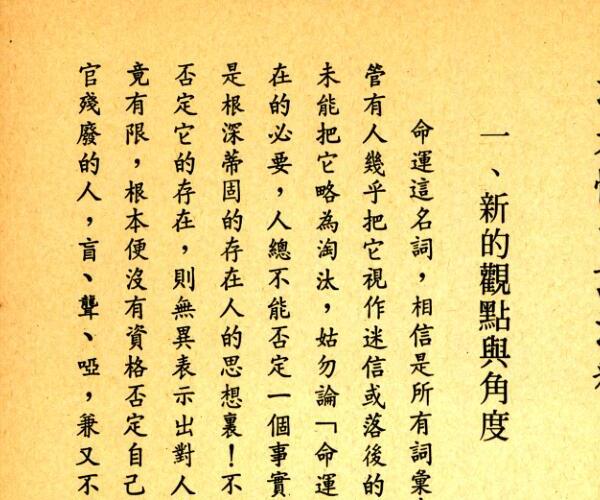 一、新的觀點與角度
命運這名詞，相信是所有詞彙
管有人幾乎把它視作迷信或落後的
未能把它略為淘汰，姑勿論「命運
在的必要，人總不能否定一個事實
是根深蒂固的存在人的思想裏！不
否定它的存在，則無異表示出對人
竟有限，根本便沒有資格否定自己
官殘廢的人，盲、聾、啞，兼又不